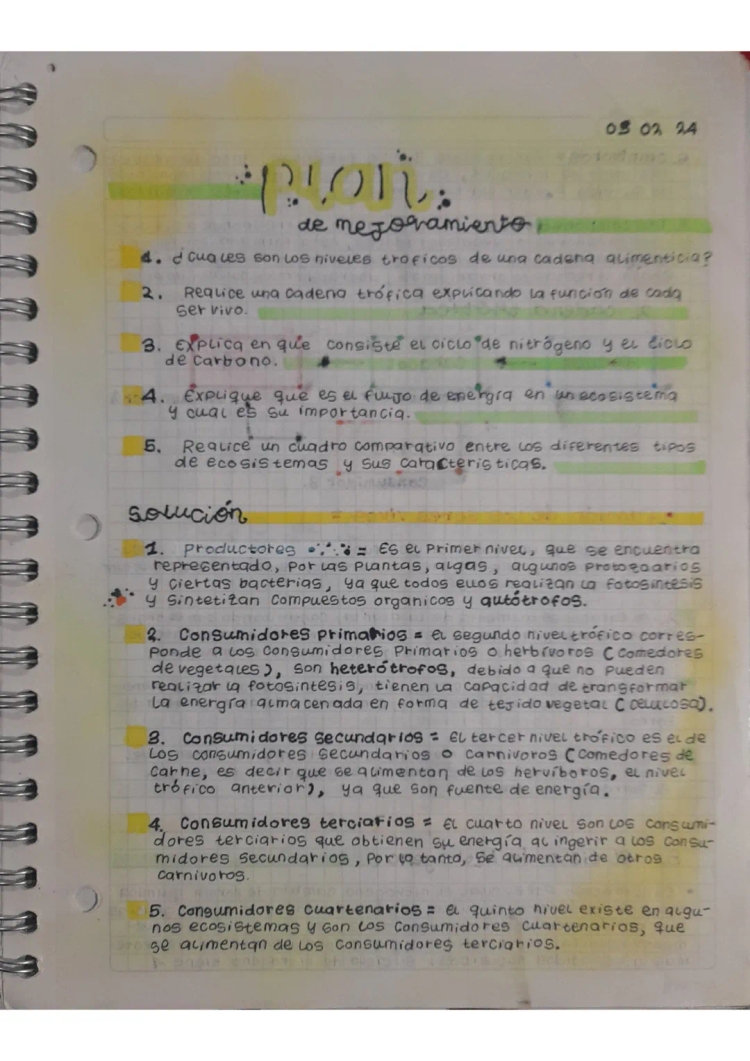 05 02 24
plan
de mejoramiento
1. ¿Cuales son los niveles troficos de una cadena alimenticia?
2. Realice una cadena trófica explicando la función de cada
ser vivo.
3. Explica en que consiste el ciclo de nitrógeno y el ciclo
de Carbono.
4. Explique que es el flujo de energía en un ecosistema
y cual es su importancia.
5. Realice un cuadro comparativo entre los diferentes tipos
de ecosistemas y sus caracteristicas.
Solución
1. Productores = Es el primer nivel, que se encuentra
representado, por las plantas, algas, algunos protozoarios
y ciertas bacterias, ya que todos ellos realizan la fotosintesis
y sintetizan compuestos organicos y autótrofos.
2. Consumidores primarios = el segundo nivel trófico corres-
ponde a los consumidores primarios o herbívoros (comedores
de vegetales), son heterótrofos, debido a que no pueden
realizar la fotosintesis, tienen la capacidad de transformar
la energía almacenada en forma de tejido vegetal (celulosa).
3. Consumidores secundarios = El tercer nivel trófico es el de
los consumidores secundarios o carnivoros (comedores de
carne, es decir que se alimentan de los hervíboros, el nivel
trófico anterior), ya que son fuente de energía.
4. Consumidores terciarios = El cuarto nivel son los consumi-
dores terciarios que obtienen su energía al ingerir a los consu-
midores secundarios, por lo tanto, se alimentan de otros
carnivoros.
5. Consumidores cuartenarios = el quinto nivel existe en algu-
nos ecosistemas y son los consumidores cuartenarios, que
se alimentan de los consumidores terciarios.